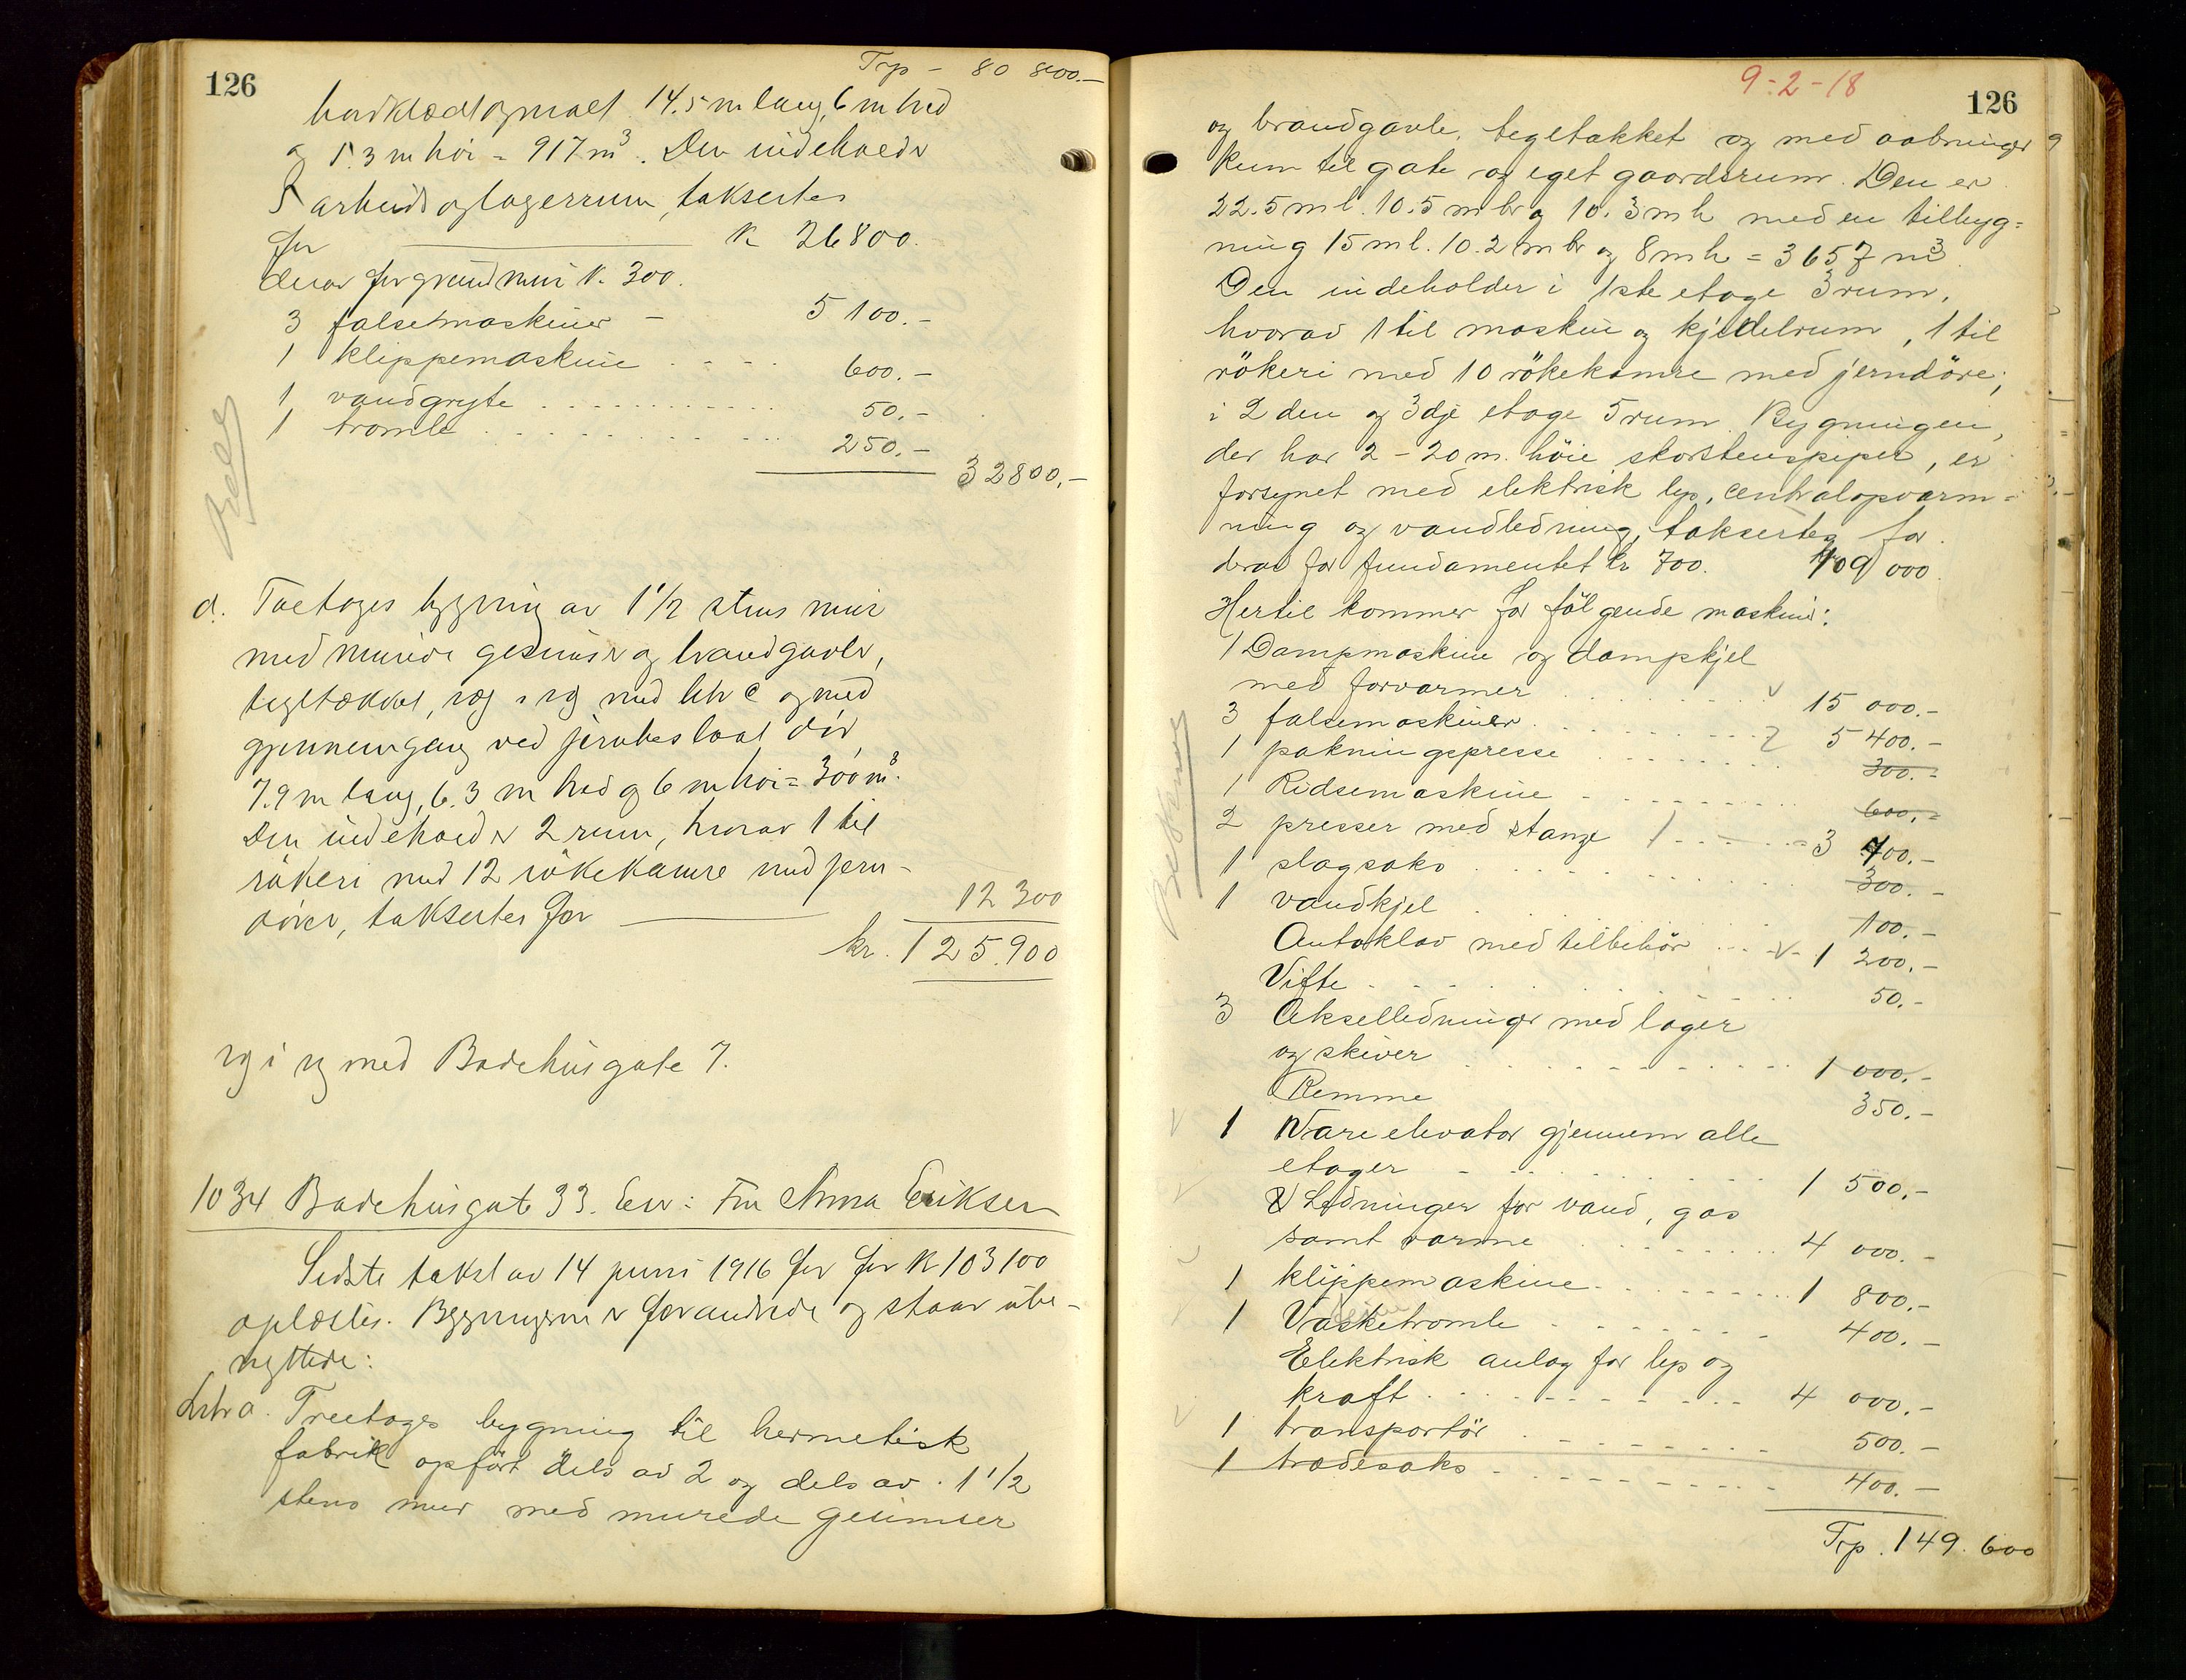 126
Trp - 80 800.-
bordklædt og malt 14.5 m lang, 6 m bred
og 5.3 m høi = 917 m³. Den indeholder
5 arbeids og lagerrum, taksertes
for K 26800.
derav for grundmur K. 300.
3 falsemaskiner - 5 100.-
1 klippemaskine . . . . 600.-
1 vandgryte . . . . . . . . 50.-
1 tromle . . . . . . . . 250.-
32800.-
d. Toetages bygning av 1 1/2 stens mur
med murede gesimser og brandgavler,
tegltækket, væg i væg med litr c og med
gjennemgang ved jernbeslaat dör,
7.9 m lang, 6.3 m bred og 6 m høi = 300 m³.
Den indeholder 2 rum, hvorav 1 til
rökeri med 12 rökekamre med jern-
dörer, taksertes for 12 300
kr. 125.900
væg i væg med Badehusgate 7.
1034 Badehusgate 33. Eier: Fru Anna Eriksen
Sidste takst av 14 juni 1916 for K 103100
oplæstes. Bygningerne er forandrede og staar ube-
nyttede:
Litr a. Treetages bygning til hermetisk
fabrik opfört dels av 2 og dels av 1 1/2
stens mur med murede gesimser
9-2-18
126
og brandgavle, tegltakket og med aabninger
kun til gate og eget gaardsrum. Den er
22.5 m l. 10.5 m br og 10.3 m h med en tilbyg=
ning 15 m l. 10.2 m br og 8 m h = 3657 m³.
Den indeholder i 1ste etage 3 rum,
hvorav 1 til maskin og kjedelrum, 1 til
rökeri med 10 rökekamre med jerndöre;
i 2den og 3dje etage 5 rum. Bygningen,
der har 2 - 20 m. höie skorstenspiper, er
forsynet med elektrisk lys, centralopvarm=
ning og vandledning, taksertes for
derav for fundamentet kr 700. 109 000.
Hertil kommer for fölgende maskiner:
1 Dampmaskine og dampkjel
med forvarmer . . . . . . 15 000.-
3 falsemaskiner . . . . . . 5 400.-
1 pakningspresse . . . . . . 300.-
1 Ridsemaskine . . . . . . 600.-
2 presser med stanze . . . . 3 400.-
1 slagsaks . . . . . . 300.-
1 vandkjel . . . . . . 100.-
Autoklav med tilbehör . . . 1 200.-
Vifte . . . . . . 50.-
3 Akselledninger med lager
og skiver . . . . . . 1 000.-
Remme 350.-
1 Vareelevator gjennem alle
etager . . . . . . 1 500.-
Ledninger for vand, gas
samt varme . . . . . . 4 000.-
1 klippemaskine . . . . . . 1 800.-
1 Vasketromle . . . . . . 400.-
Elektrisk anlæg for lys og
kraft . . . . . . 4 000.-
1 transportör . . . . . . 500.-
1 trædesaks . . . . . . 400.-
Trp. 149.600